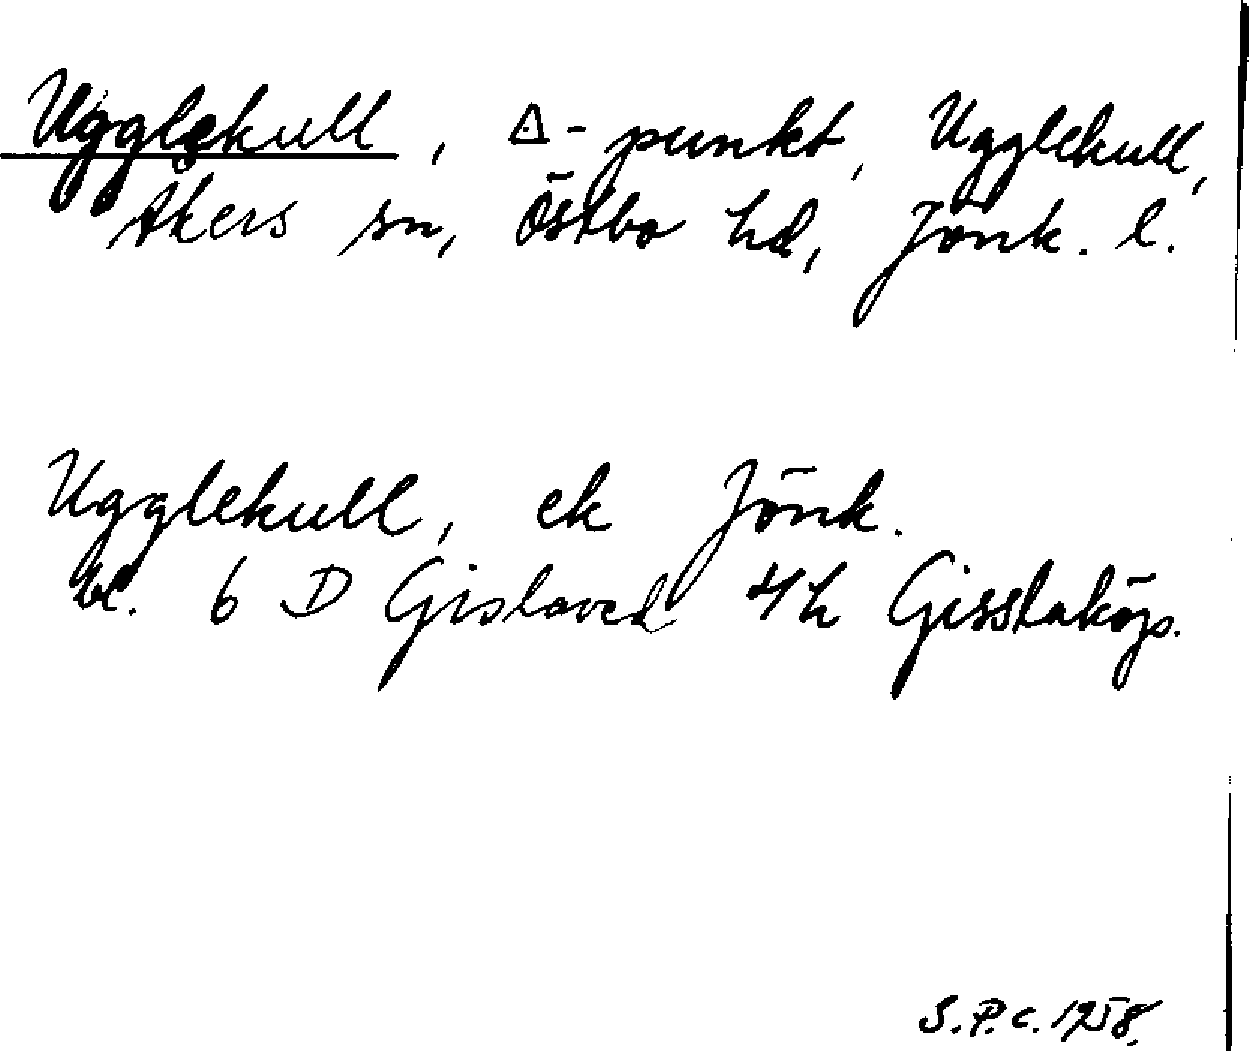 Ugglekull, Δ-punkt, Ugglekull,
Åkers sn, Östbo hd, Jönk. l.
Ugglekull, ek Jönk.
bl. 6 D Gislaved 4h Gisslaköp.
S.P.C. 1958.